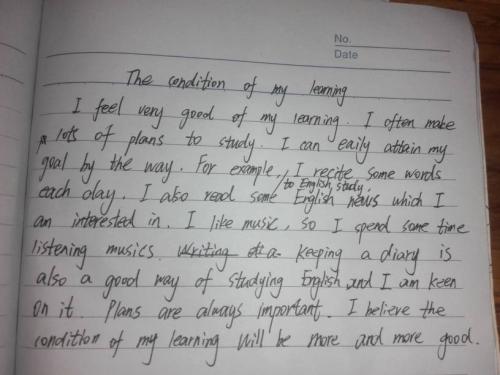 No.
Date
The condition of my learning
I feel very good of my learning. I often make
lots of plans to study. I can eaily attain my
goal by the way. For example, I recite some words
to English, study,
each day. I also read some English news which I
am interested in. I like music, so I spend some time
listening musics. writing keeping a diary is
also a good way of studying English, and I am keen
on it. Plans are always important. I believe the
condition of my learning will be more and more good.